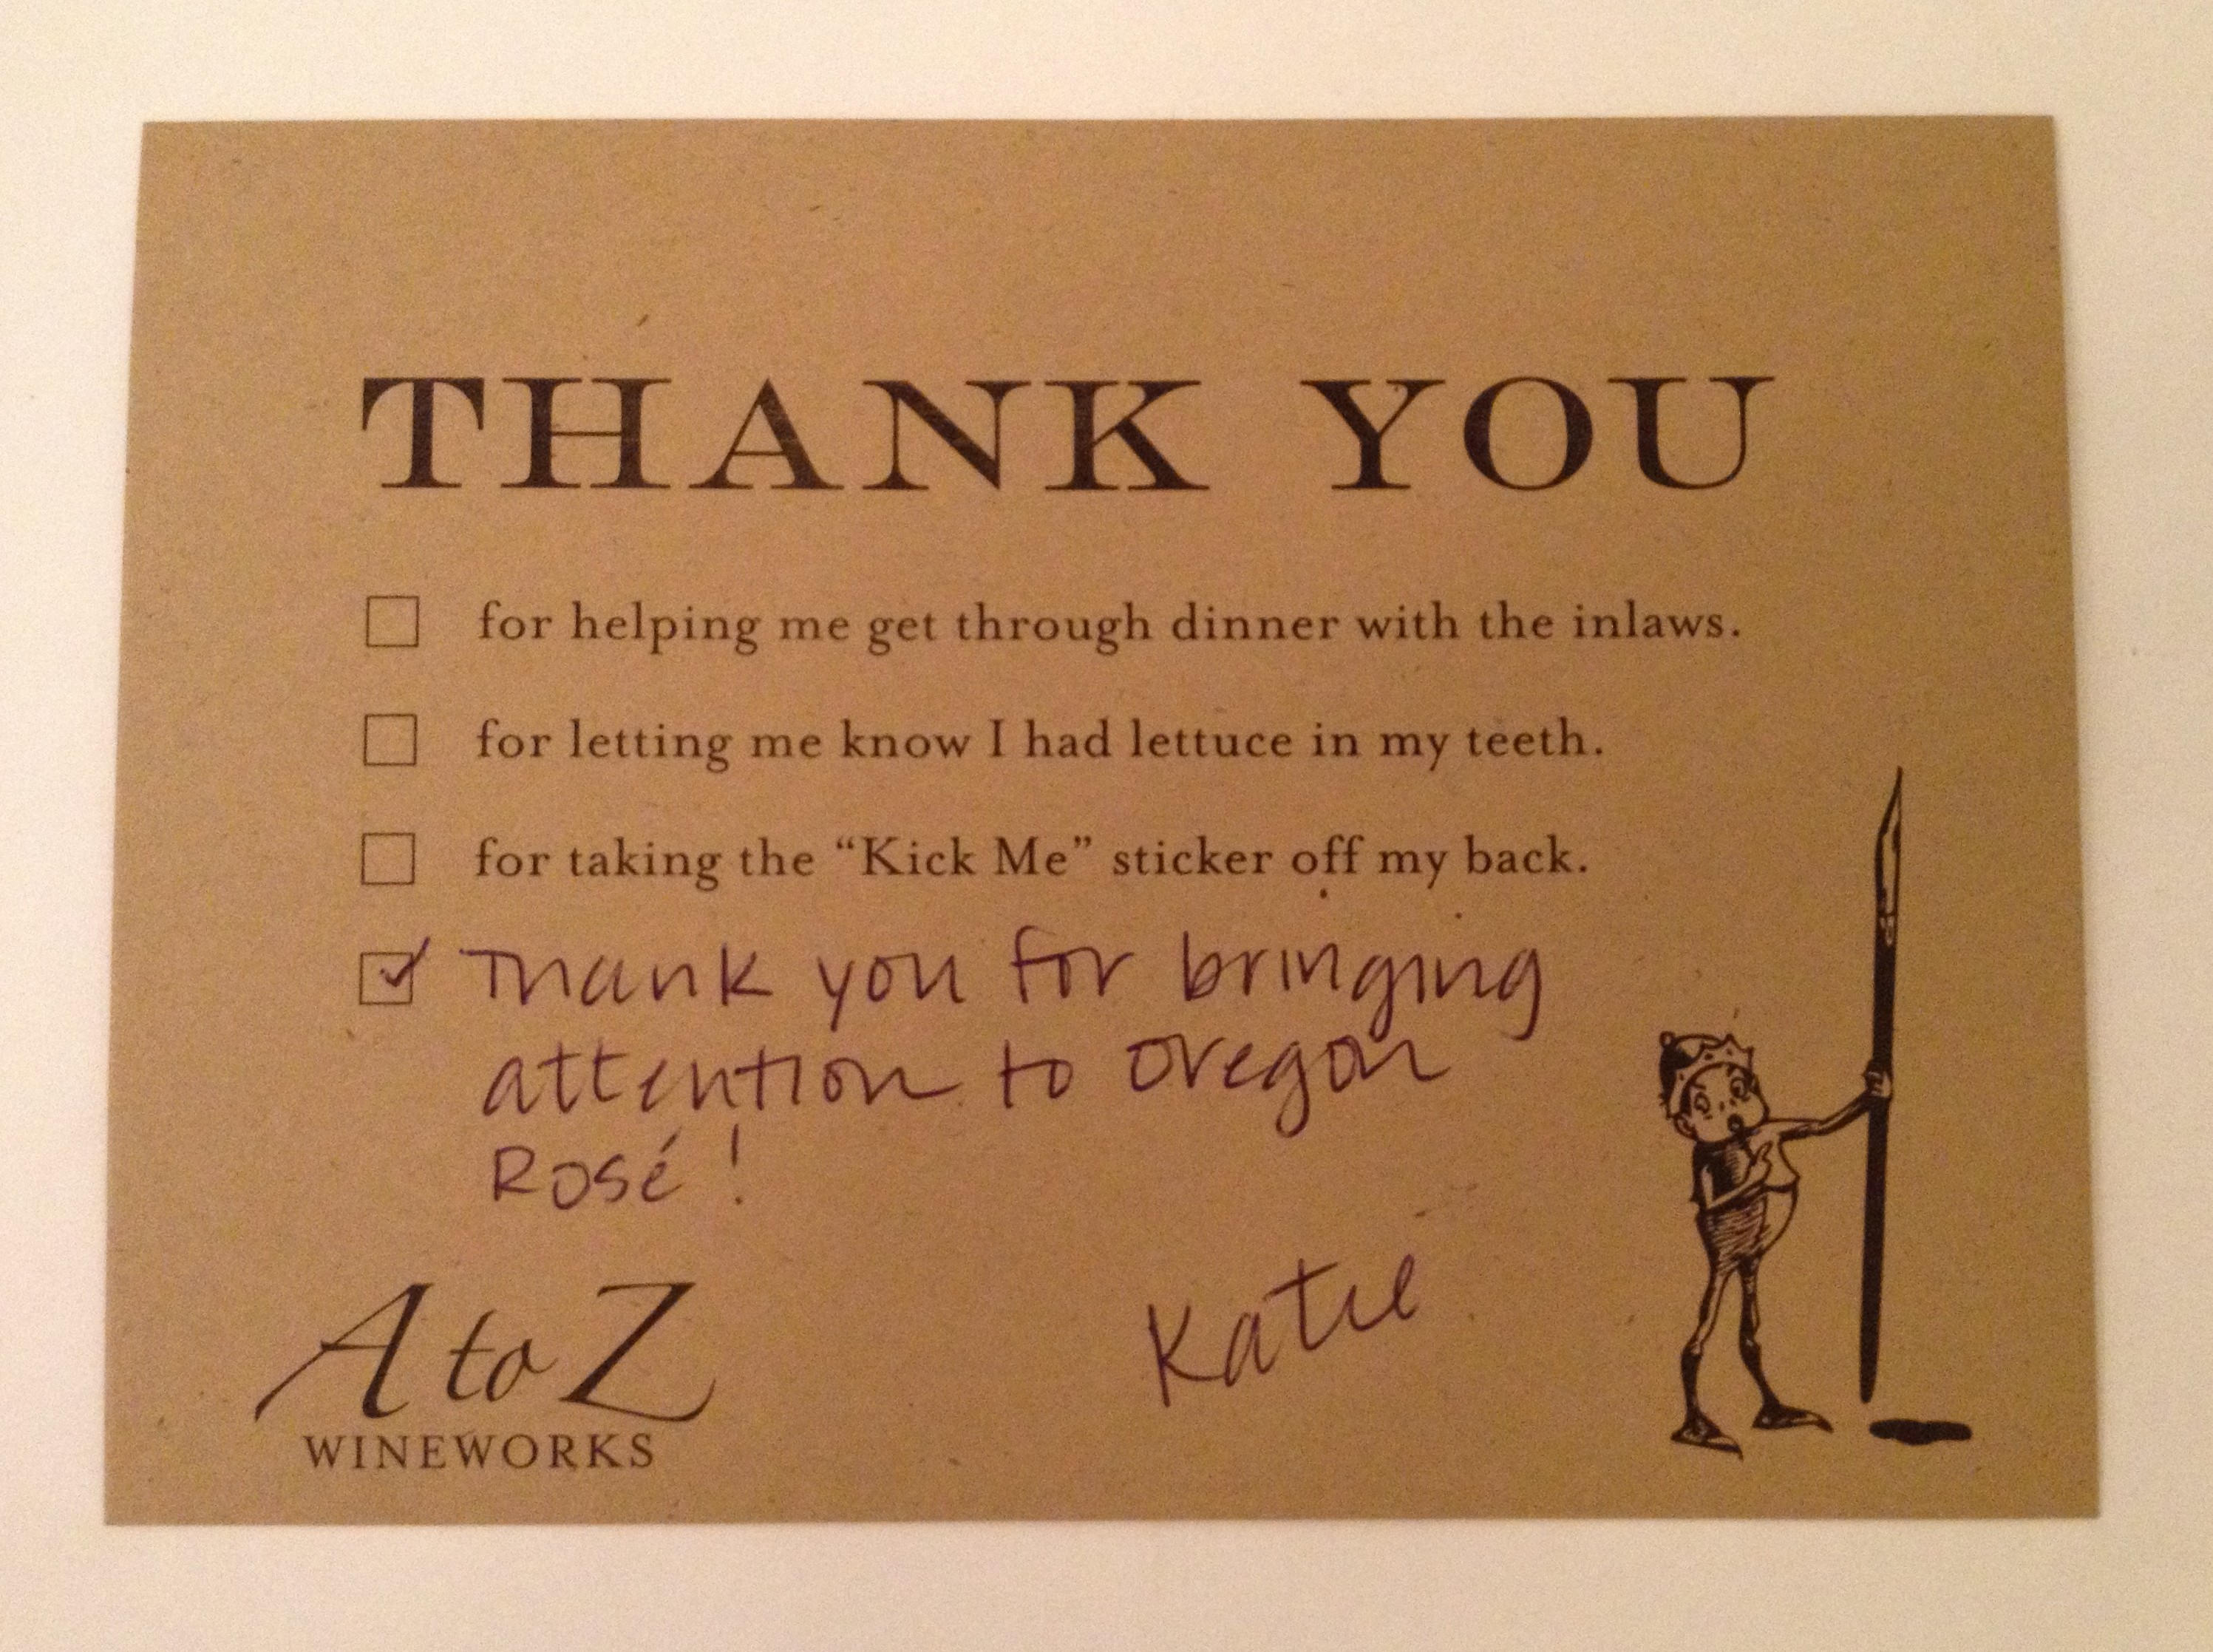 THANK YOU
for helping me get through dinner with the inlaws.
for letting me know I had lettuce in my teeth.
for taking the “Kick Me” sticker off my back.
Thank you for bringing
attention to Oregon
Rosé !
Katie
A to Z
WINEWORKS